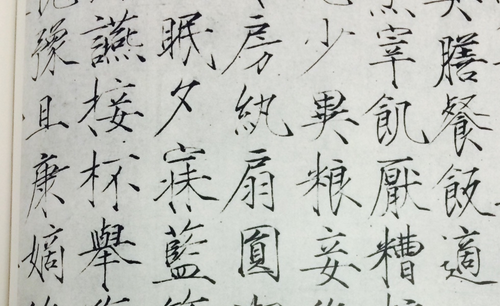 膳餐飯適
宰飢厭糟
少異粮妾
房紈扇圓
眠夕寐藍
讌接杯舉
豫且康嫡